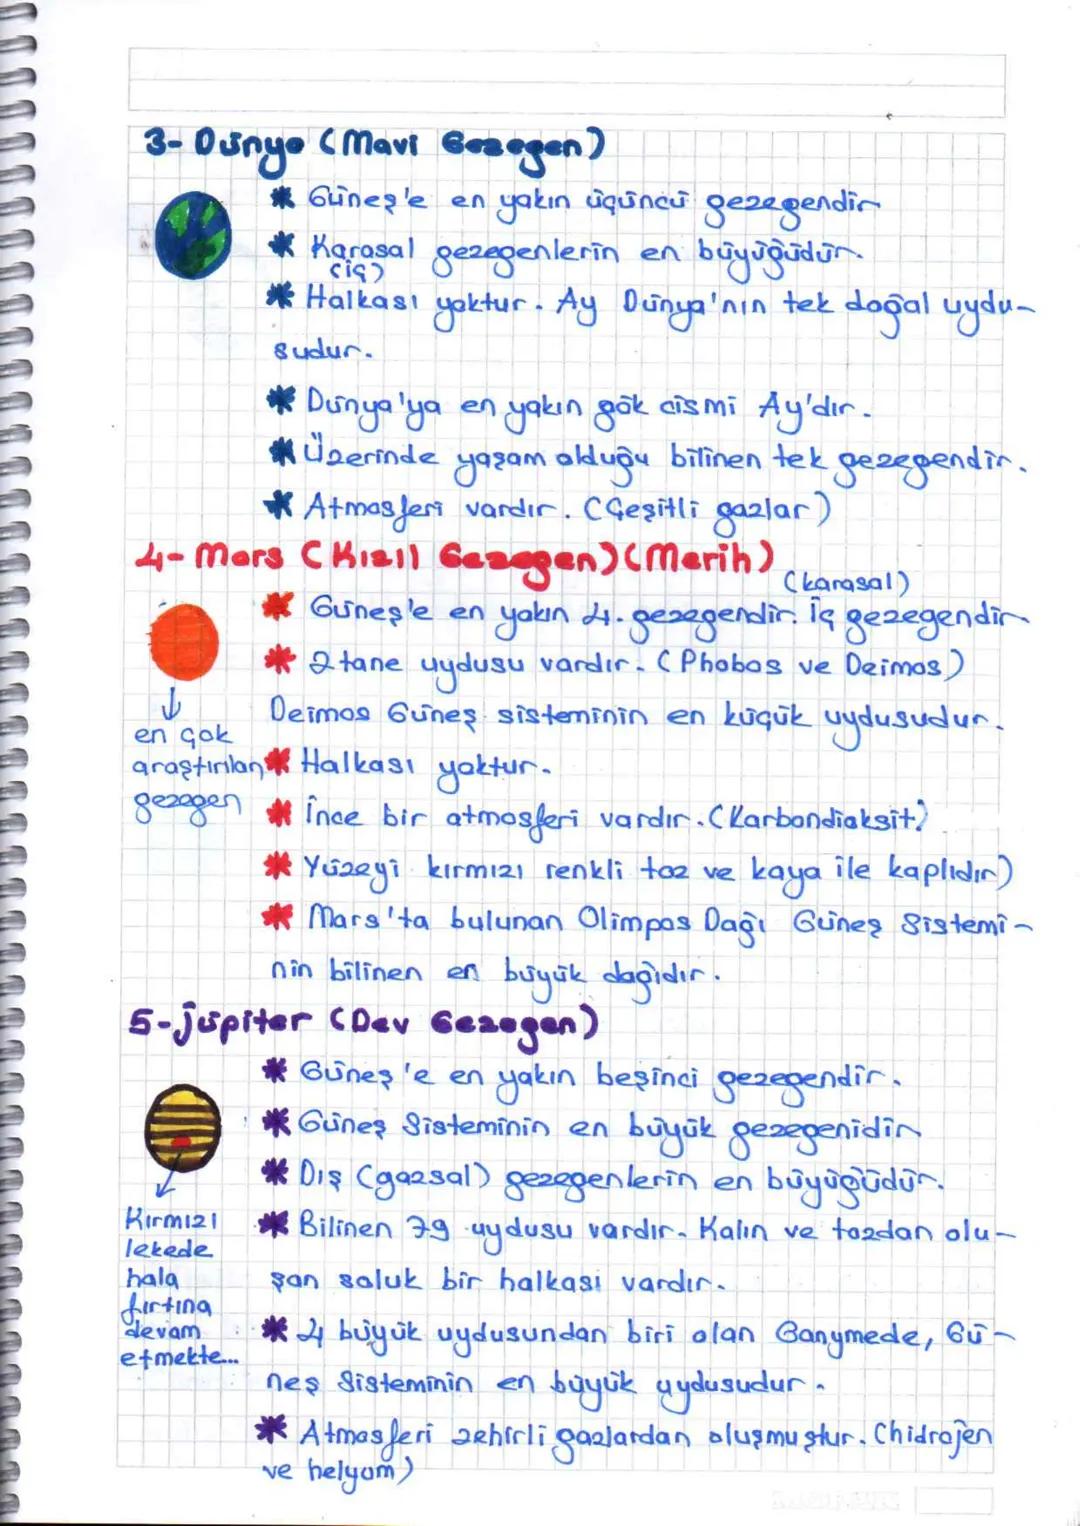 3- Dünya (Mavi Gezegen)
* Güneş'e en yakın üçüncü gezegendir
* Karasal gezegenlerin en büyüğüdür.
(iç)
* Halkası yoktur. Ay Dünya'nın tek doğal uydu-
sudur.
* Dünya'ya en yakın gök cismi Ay'dır.
* Üzerinde yaşam olduğu bilinen tek gezegendir.
* Atmosferi vardır. (Çeşitli gazlar)
4- Mars (Kızıl Gezegen) (Merih)
(karasal)
* Güneş'e en yakın 4. gezegendir. İç gezegendir.
* 2 tane uydusu vardır. (Phobos ve Deimos)
Deimos Güneş sisteminin en küçük uydusudur.
en çok
araştırılan
gezegen
* Halkası yoktur.
* İnce bir atmosferi vardır. (Karbondioksit)
* Yüzeyi kırmızı renkli toz ve kaya ile kaplıdır)
* Mars'ta bulunan Olimpos Dağı Güneş Sistemi-
nin bilinen en büyük dağıdır.
5- Jüpiter (Dev Gezegen)
* Güneş'e en yakın beşinci gezegendir.
* Güneş Sisteminin en büyük gezegenidir
* Dış (gazsal) gezegenlerin en büyüğüdür.
* Bilinen 79 uydusu vardır. Kalın ve tozdan olu-
şan soluk bir halkası vardır.
* 4 büyük uydusundan biri olan Ganymede, Gü-
neş Sisteminin en büyük uydusudur.
* Atmosferi zehirli gazlardan oluşmuştur. (hidrojen
ve helyum)
Kırmızı
lekede
hala
fırtına
devam
etmekte...